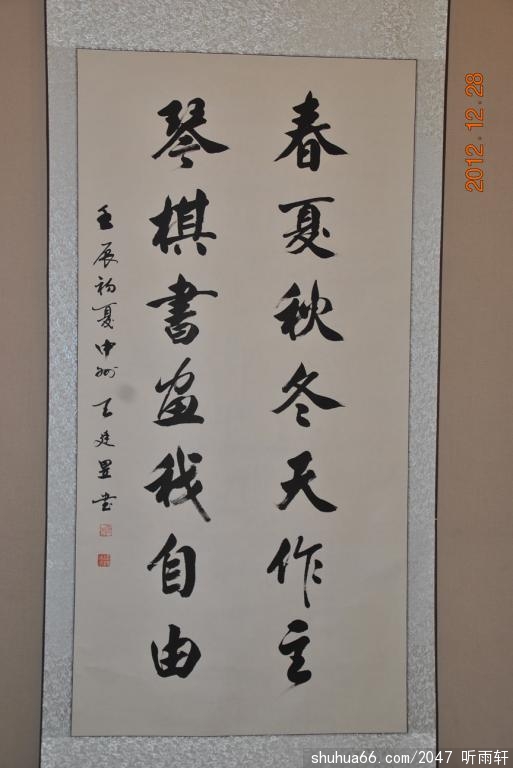 春夏秋冬天作主
琴棋書画我自由
壬辰初夏中州王廷
書
2012.12.28
shuhua66.com/2047 听雨轩